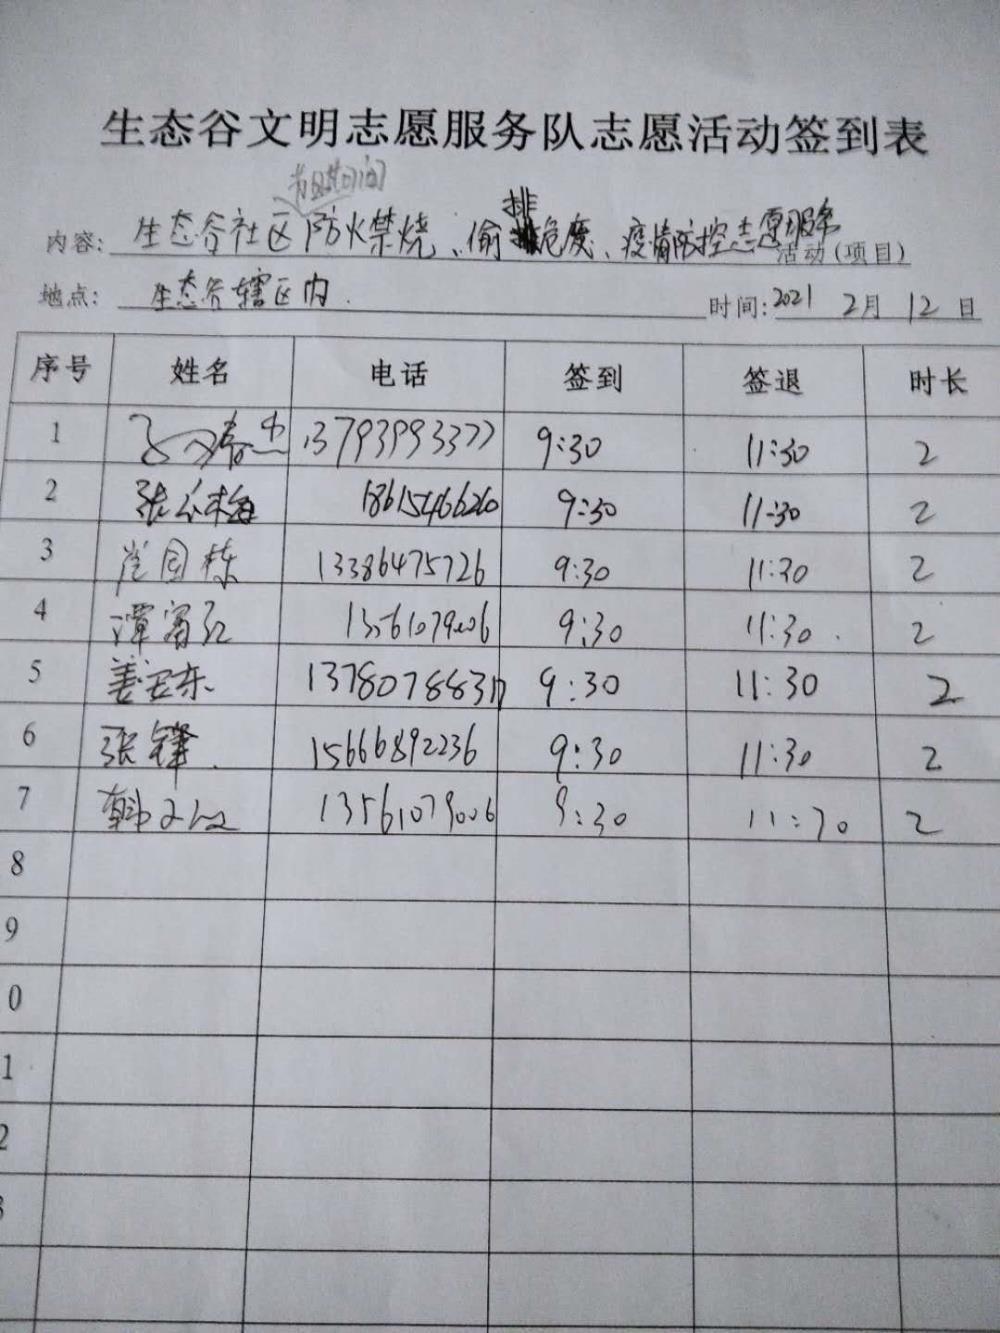 生态谷文明志愿服务队志愿活动签到表
节日期间
内容: 生态谷社区防火禁烧、偷排危废、疫情防控志愿服务 活动(项目)
地点: 生态谷辖区内. 时间: 2021 2月 12日
序号 姓名 电话 签到 签退 时长
1 13793993377 9:30 11:30 2
2 张 梅 18615466260 9:30 11:30 2
3 国栋 13386475726 9:30 11:30 2
4 谭 红 13561079006 9:30 11:30 2
5 姜 东 13780788317 9:30 11:30 2
6 张锋 15666892236 9:30 11:30 2
7 韩 13561079006 9:30 11:30 2
8
9
0
1
2
3